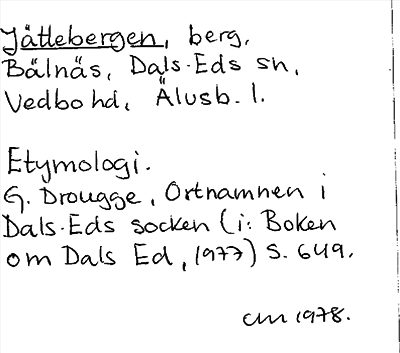 Jättebergen, berg,
Bälnäs, Dals-Eds sn,
Vedbo hd, Älvsb. l.
Etymologi.
G. Drougge, Ortnamnen i
Dals-Eds socken (i: Boken
om Dals Ed, 1977) s. 649.
CM 1978.